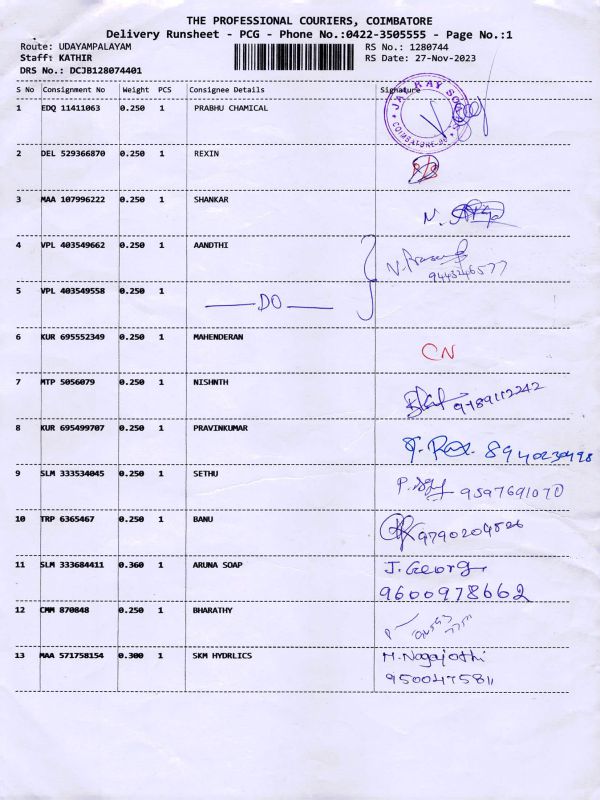 THE PROFESSIONAL COURIERS, COIMBATORE
Delivery Runsheet - PCG - Phone No.:0422-3505555 - Page No.:1
Route: UDAYAMPALAYAM RS No.: 1280744
Staff: KATHIR RS Date: 27-Nov-2023
DRS No.: DCJB128074401
S No Consignment No Weight PCS Consignee Details Signature
1 EDQ 11411063 0.250 1 PRABHU CHAMICAL
COIMBATORE
2 DEL 529366870 0.250 1 REXIN
3 MAA 107996222 0.250 1 SHANKAR N.
4 VPL 403549662 0.250 1 AANDTHI
9443246577
5 VPL 403549558 0.250 1 — DO —
6 KUR 695552349 0.250 1 MAHENDERAN CN
7 MTP 5056079 0.250 1 NISHNTH 9789112242
8 KUR 695499707 0.250 1 PRAVINKUMAR 8940230498
9 SLM 333534045 0.250 1 SETHU 9597691070
10 TRP 6365467 0.250 1 BANU 9790204526
11 SLM 333684411 0.360 1 ARUNA SOAP J. Georg
9600978662
12 CMM 870848 0.250 1 BHARATHY
13 MAA 571758154 0.300 1 SKM HYDRLICS M. Nagajothi
9500475811